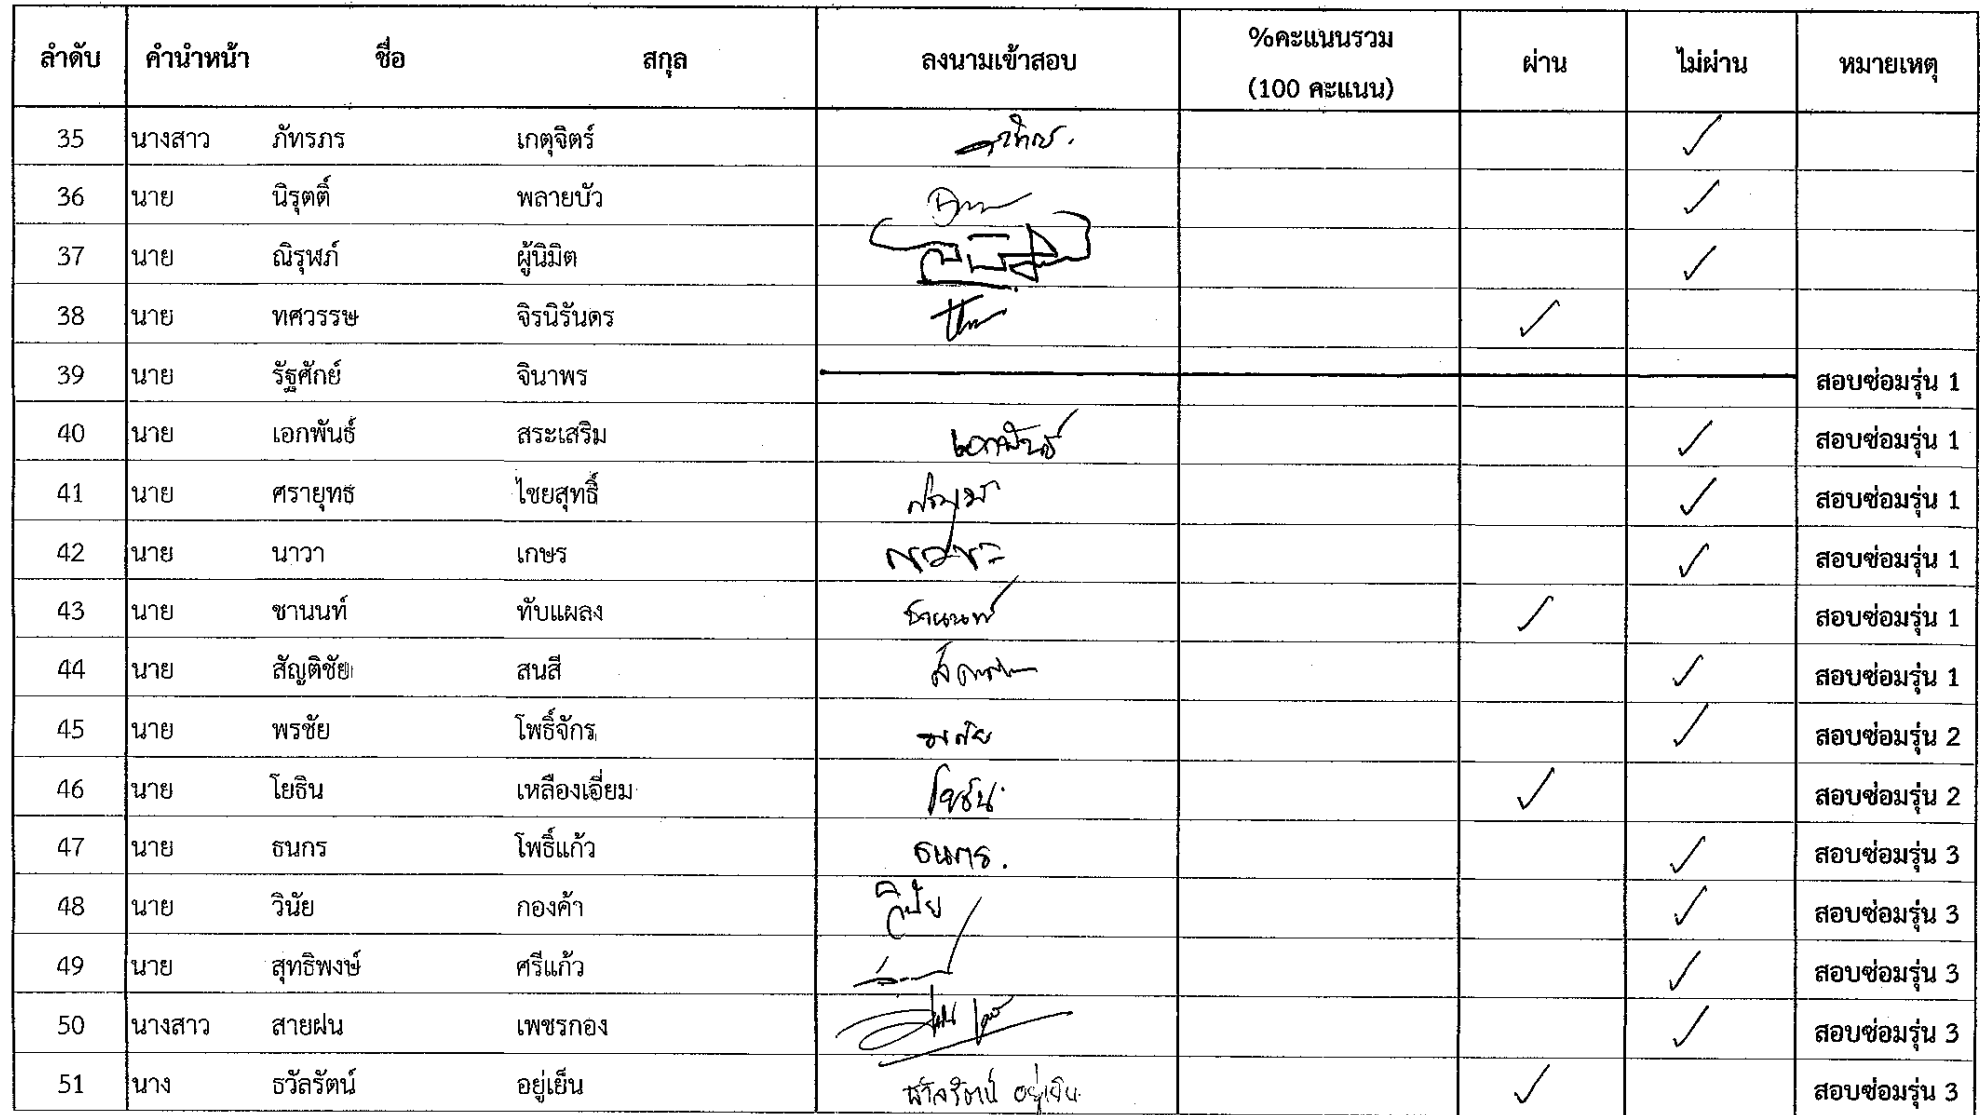 ลำดับ คำนำหน้า ชื่อ สกุล ลงนามเข้าสอบ %คะแนนรวม (100 คะแนน) ผ่าน ไม่ผ่าน หมายเหตุ
35 นางสาว ภัทรภร เกตุจิตร์ ✓
36 นาย นิรุตติ์ พลายบัว ✓
37 นาย ณิรุฬภ์ ผู้นิมิต ✓
38 นาย ทศวรรษ จิรนิรันดร ✓
39 นาย รัฐศักย์ จินาพร สอบซ่อมรุ่น 1
40 นาย เอกพันธ์ สระเสริม เอกพันธ์ ✓ สอบซ่อมรุ่น 1
41 นาย ศรายุทธ ไชยสุทธิ์ ✓ สอบซ่อมรุ่น 1
42 นาย นาวา เกษร ✓ สอบซ่อมรุ่น 1
43 นาย ชานนท์ ทับแผลง ชานนท์ ✓ สอบซ่อมรุ่น 1
44 นาย สัญติชัย สนสี ✓ สอบซ่อมรุ่น 1
45 นาย พรชัย โพธิ์จักร ✓ สอบซ่อมรุ่น 2
46 นาย โยธิน เหลืองเอี่ยม โยธิน ✓ สอบซ่อมรุ่น 2
47 นาย ธนกร โพธิ์แก้ว ธนกร. ✓ สอบซ่อมรุ่น 3
48 นาย วินัย กองค้า วินัย ✓ สอบซ่อมรุ่น 3
49 นาย สุทธิพงษ์ ศรีแก้ว ✓ สอบซ่อมรุ่น 3
50 นางสาว สายฝน เพชรกอง ✓ สอบซ่อมรุ่น 3
51 นาง ธวัลรัตน์ อยู่เย็น ธวัลรัตน์ อยู่เย็น ✓ สอบซ่อมรุ่น 3